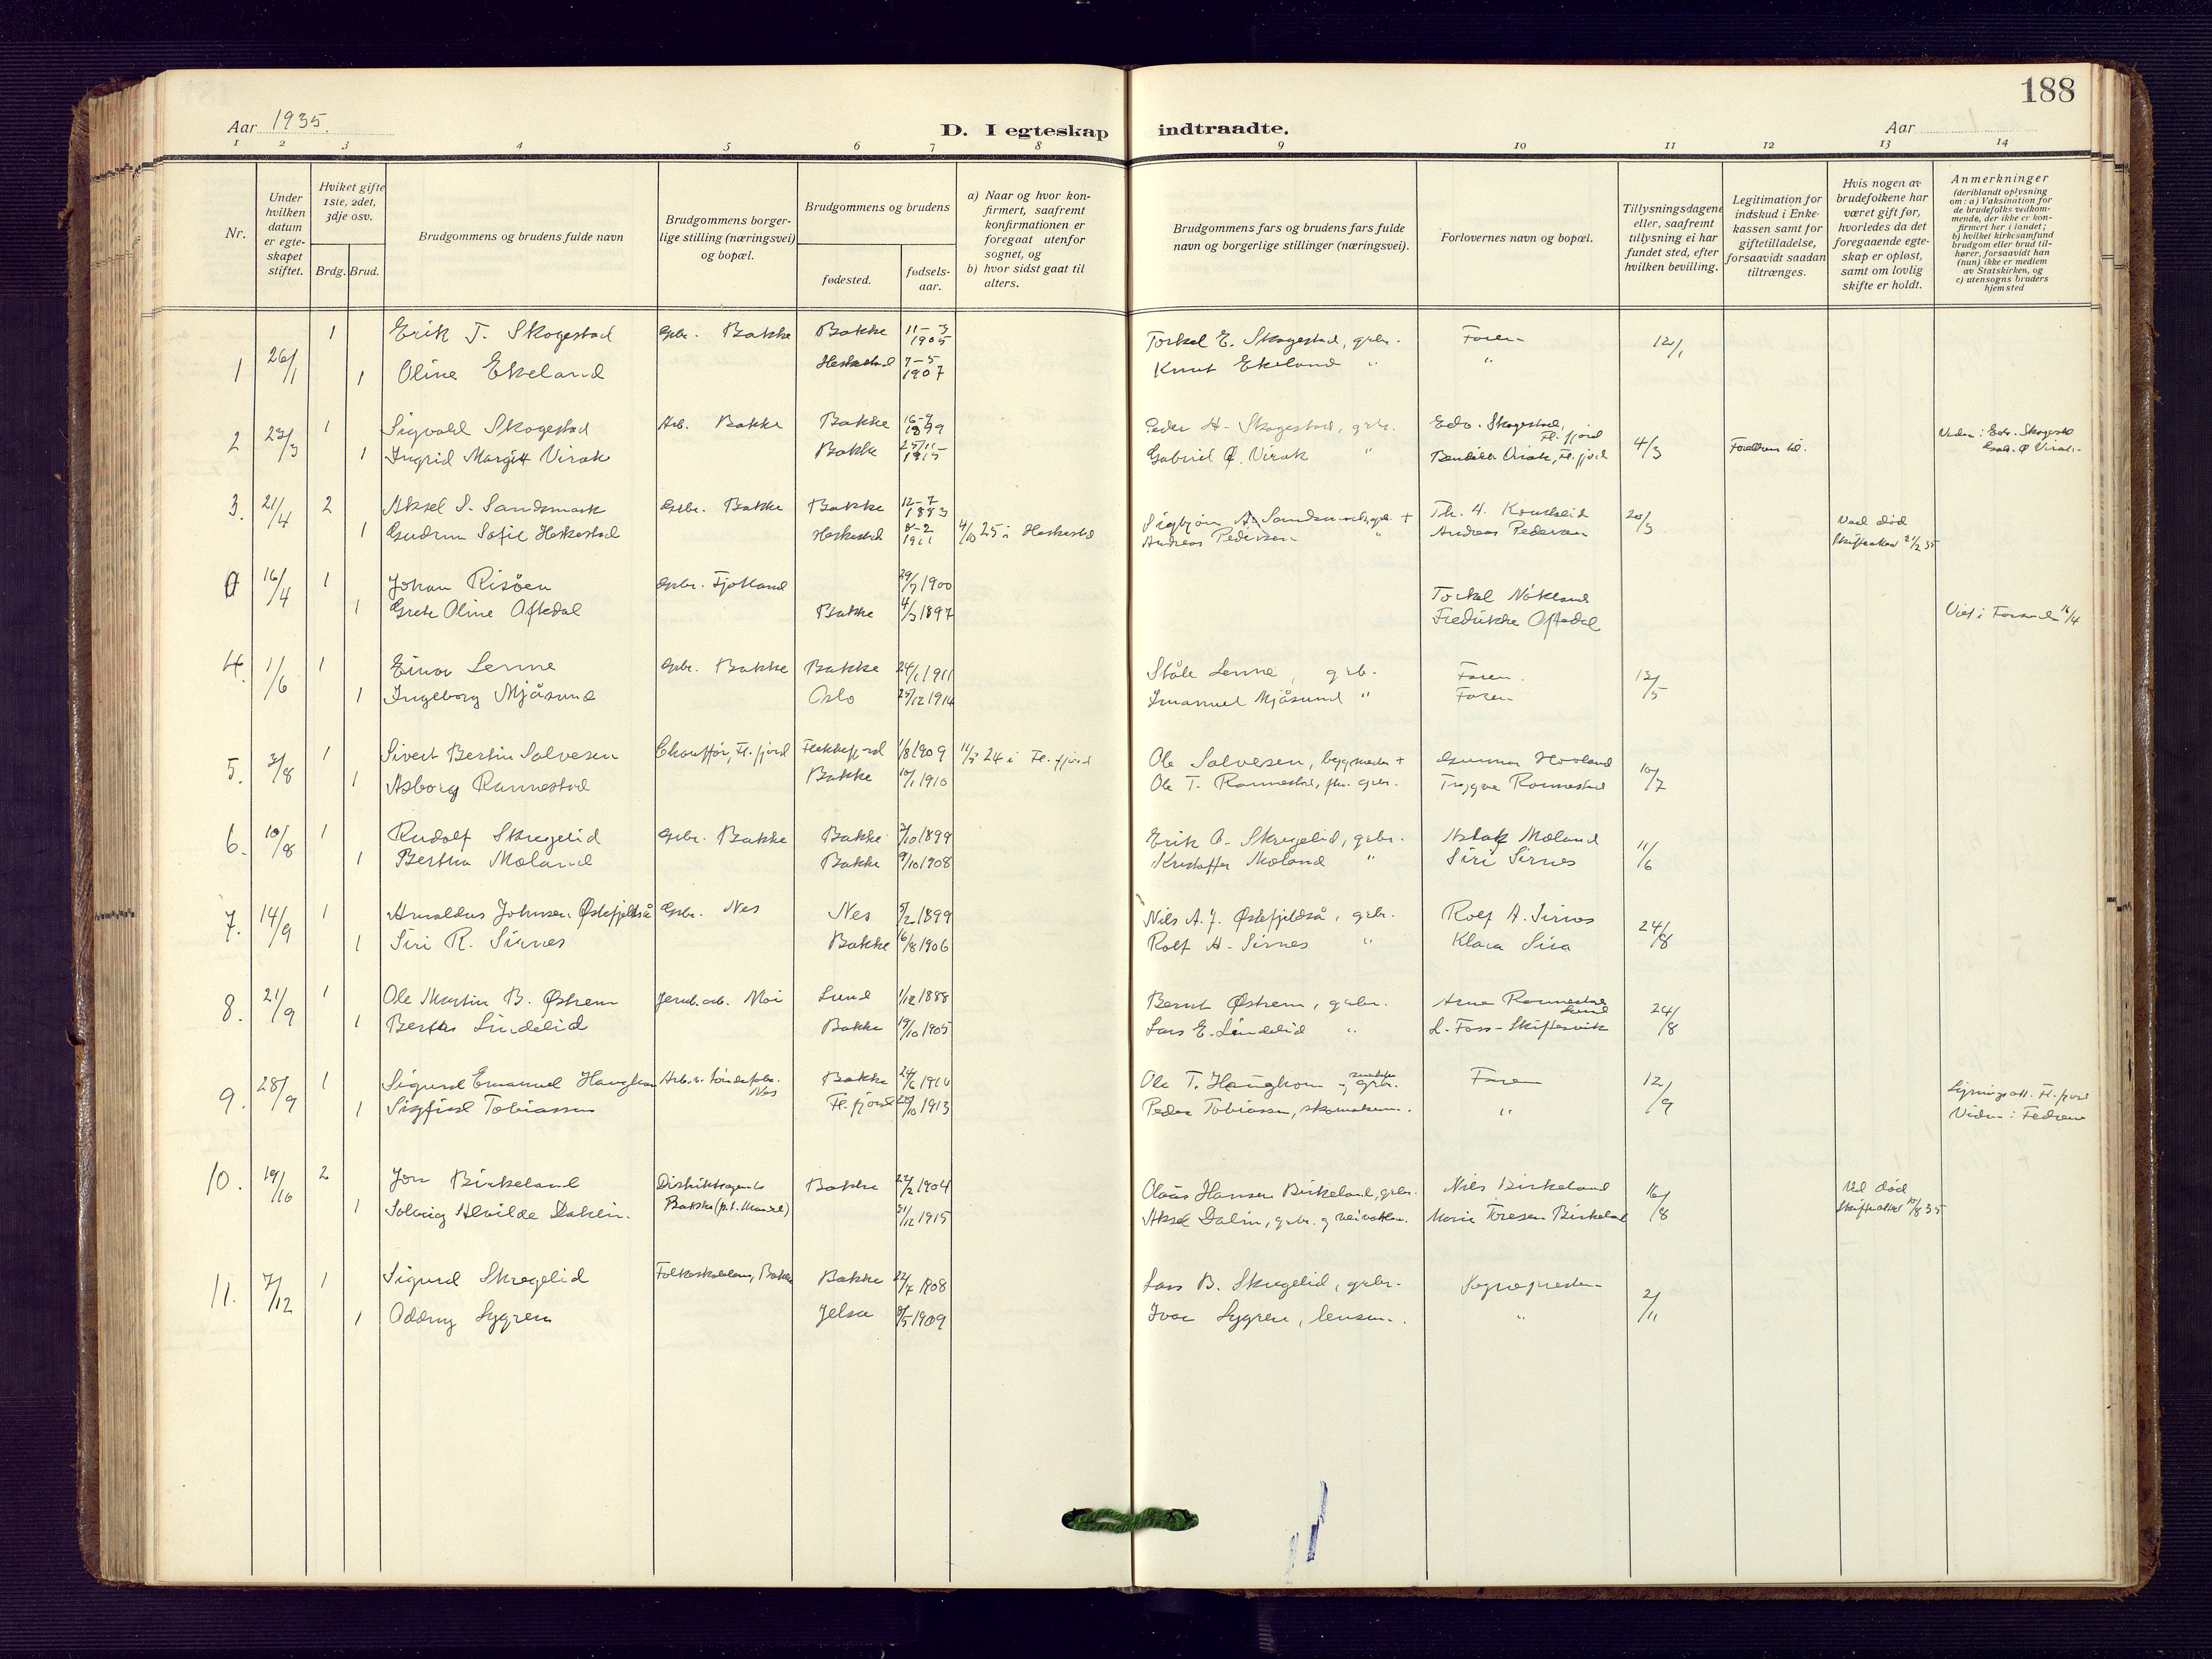 188
Aar 1935.
D. I egteskap indtraadte.
Aar
1 2 3 4 5 6 7 8 9 10 11 12 13 14
Nr.
Under hvilken datum er egteskapet stiftet.
Hvilket gifte 1ste, 2det, 3dje osv.
Brdg. Brud.
Brudgommens og brudens fulde navn
Brudgommens borgerlige stilling (næringsvei) og bopæl.
Brudgommens og brudens
fødested.
fødselsaar.
a) Naar og hvor konfirmert, saafremt konfirmationen er foregaat utenfor sognet, og
b) hvor sidst gaat til alters.
Brudgommens fars og brudens fars fulde navn og borgerlige stillinger (næringsvei).
Forlovernes navn og bopæl.
Tillysningsdagene eller, saafremt tillysning ei har fundet sted, efter hvilken bevilling.
Legitimation for indskud i Enkekassen samt for giftetilladelse, forsaavidt saadan tiltrænges.
Hvis nogen av brudefolkene har været gift før, hvorledes da det foregaaende egteskap er opløst, samt om lovlig skifte er holdt.
Anmerkninger
(deriblandt oplysning om: a) Vaksination for de brudefolks vedkommende, der ikke er konfirmert her i landet; b) hvilket kirkesamfund brudgom eller brud tilhører, forsaavidt han (hun) ikke er medlem av Statskirken, og c) utensogns bruders hjemsted
1 26/1 1 Erik T. Skogestad Gbr. Bakke Bakke 11-3 1905 Torkel E. Skogestad, gbr. Faren 12/1
1 Oline Ekeland Heskestad 7-5 1907 Knut Ekeland " "
2 23/3 1 Sigvald Skogestad Arb. Bakke Bakke Peder H. Skogestad, gbr. Edv. Skogestad, Fl.fjord 4/3
1 Ingrid Margit Virak Bakke 25/11 1915 Gabriel Ø. Virak " Virak, Fl.fjord
3. 21/4 2 Aksel S. Sandsmark Gbr. Bakke Bakke 12-7 1883 Sigbjørn A. Sandsmark, gbr. + Th. H. 20/3 Ved død
1 Gudrun Sofie Heskestad Heskestad 8-2 1911 4/10 25 i Heskestad Andreas Pedersen " Andreas Pedersen
0 16/4 1 Johan Risöen Gbr. Fjotland 29/7 1900 Torkel Nökland
1 Grete Oline Oftedal Bakke 4/3 1897 Fredrikke Oftedal Viet i Forsand 16/4
4. 1/6 1 Einar Lenne Gbr. Bakke Bakke 24/1 1911 Ståle Lenne, gbr. Faren 12/5
1 Ingeborg Mjåsund Oslo 25/12 1914 Imanuel Mjåsund " Faren
5. 3/8 1 Sivert Bertin Salvesen Chauffør, Fl.fjord Flekkefjord 1/8 1909 24 i Fl.fjord Ole Salvesen, + Gunnar Hovland 10/7
1 Asborg Rannestad Bakke 10/1 1910 Ole T. Rannestad, fhv. gbr. Trygve Rannestad
6. 10/8 1 Rudolf Skregelid Gbr. Bakke Bakke 1899 Erik O. Skregelid, gbr. Aslak Moland 11/6
1 Bertha Moland Bakke 9/10 1908 Kristoffer Moland " Siri Sirnes
7. 14/9 1 Arnoldus Johnsen Østefjeldså Gbr. Nes Nes 5/2 1899 Nils A. J. Østefjeldså, gbr. Rolf A. Sirnes 24/8
1 Siri R. Sirnes Bakke 16/8 1906 Rolf A. Sirnes " Klara Sira
8. 21/9 1 Ole Martin B. Østrem Jernb.arb. Moi Lund 1/12 1888 Bernt Østrem, gbr. Arne Rannestad Lund 24/8
1 Bertha Lindelid Bakke 19/10 1905 Lars E. Lindelid " L. Foss-Skiftesvik
9. 28/9 1 Sigurd Emanuel Haughom Arb. v. Nes Bakke Ole T. Haughom gbr. Faren 12/9
1 Sigfrid Tobiassen Fl.fjord 1913 Peder Tobiassen, skomaker. "
10. 19/10 2 Jon Birkeland Distriktsagent Bakke 22/2 1904 Claus Hansen Birkeland, gbr. Nils Birkeland 16/8 Ved død
1 Solveig Alvilde Dahlin. Bakke (p.t. Mandal) 31/12 1915 Aksel Dalin, gbr. og veivokter. Marie Toresen Birkeland
11. 7/12 1 Sigurd Skregelid Folkeskolelærer, Bakke Bakke 1908 Lars B. Skregelid, gbr. Sognepresten 2/11
1 Oddny Sygren Jelsa 1909 Ivar Sygren, lensm. "